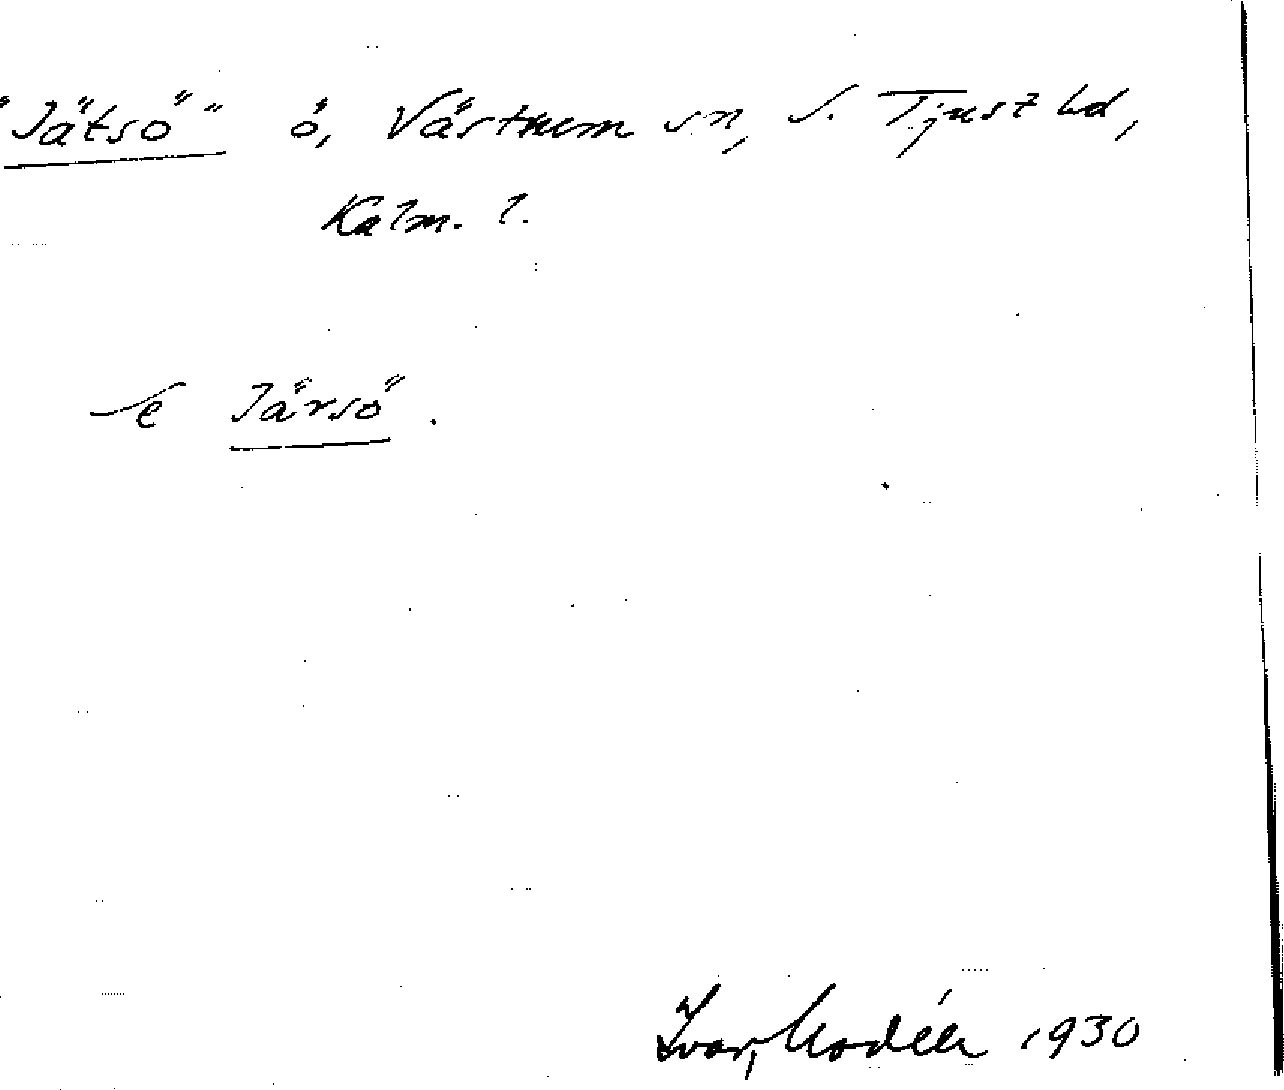 "Jätsö" ö, Västrum sn, S. Tjust hd,
Kalm. l.
Se Järsö.
Ivar Modéer 1930